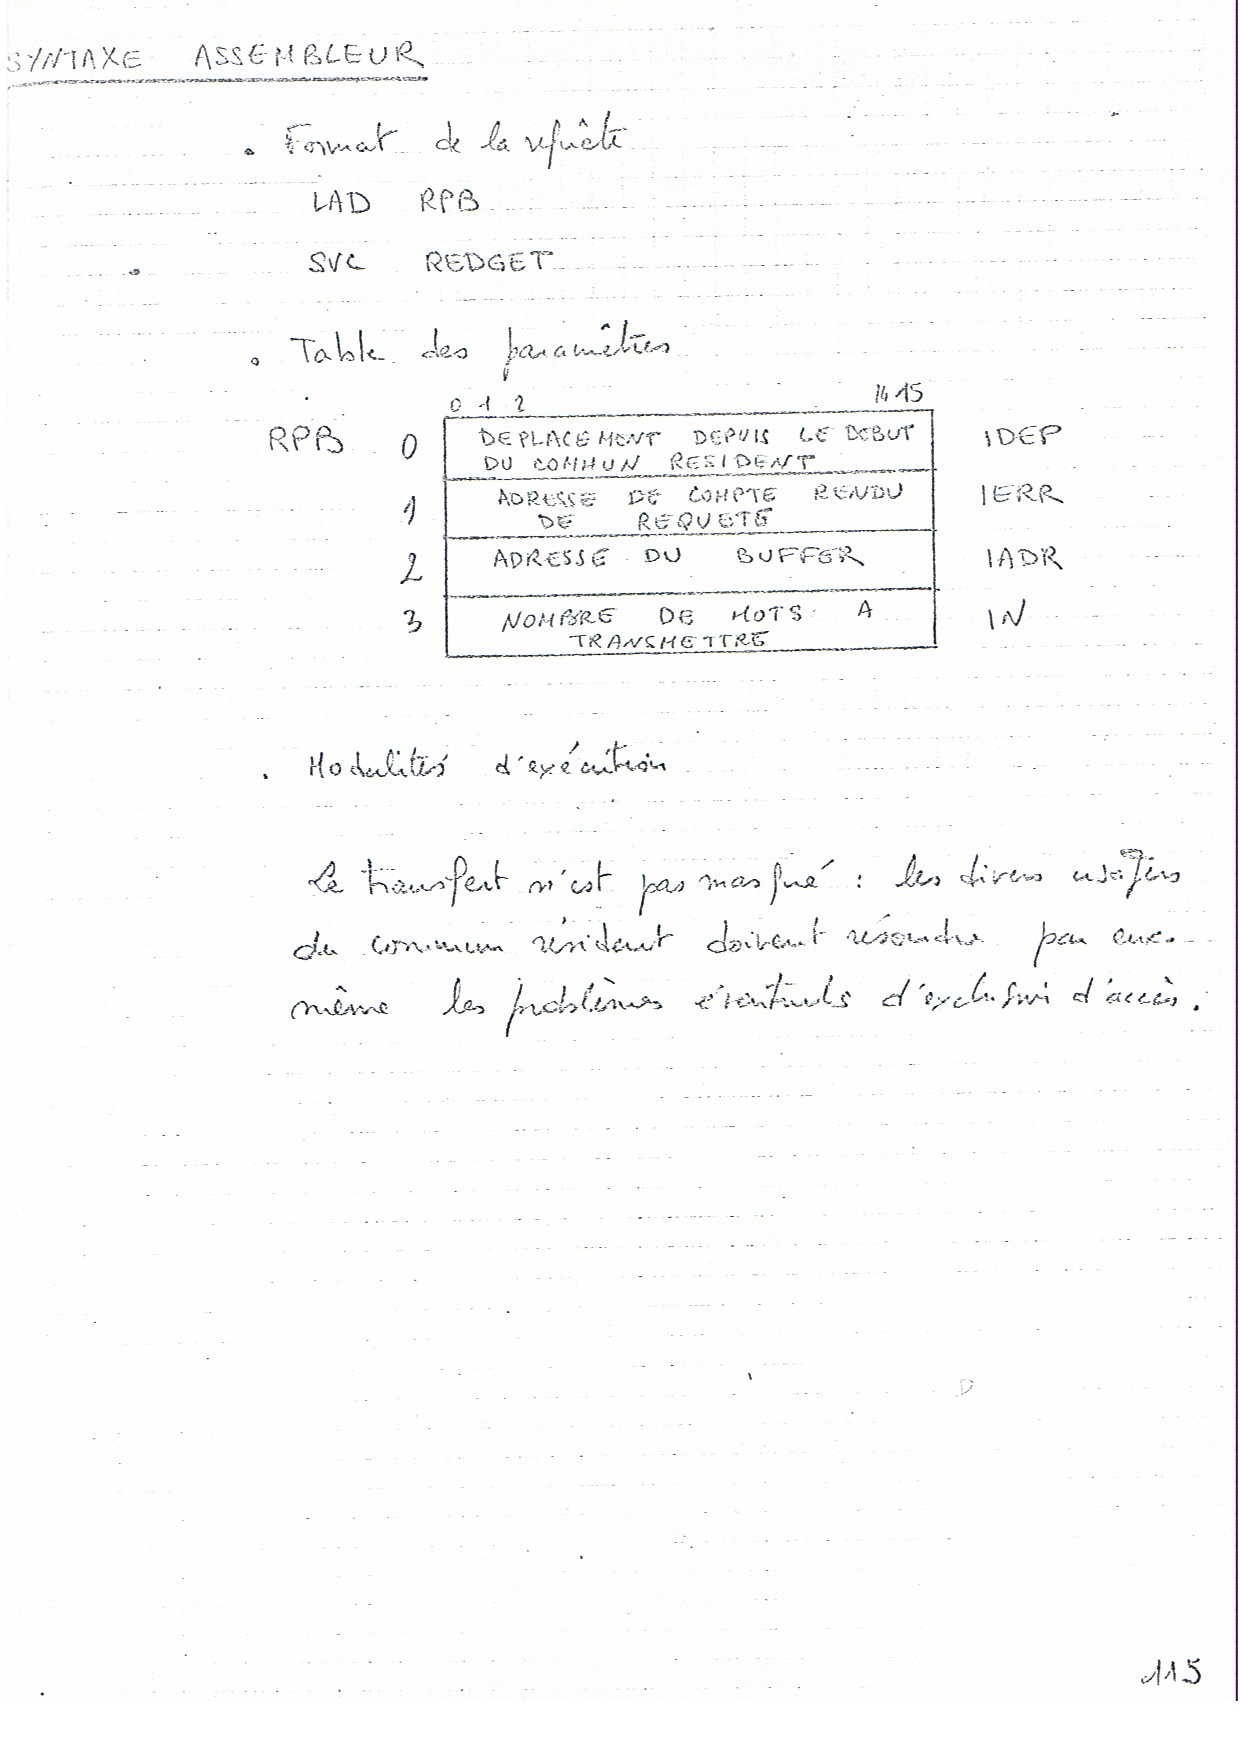 SYNTAXE ASSEMBLEUR
. Format de la requête
LAD RPB
SVC REDGET
. Table des paramêtres
0 1 2 14 15
RPB 0 DEPLACEMENT DEPUIS LE DEBUT IDEP
DU COMMUN RESIDENT
1 ADRESSE DE COMPTE RENDU IERR
DE REQUETE
2 ADRESSE DU BUFFER IADR
3 NOMBRE DE MOTS A IN
TRANSMETTRE
. Modalités d'exécution
Le transfert n'est pas masqué : les divers usagers
du commun résident doivent résoudre par eux-
même les problèmes éventuels d'exclusivi d'accès.
115